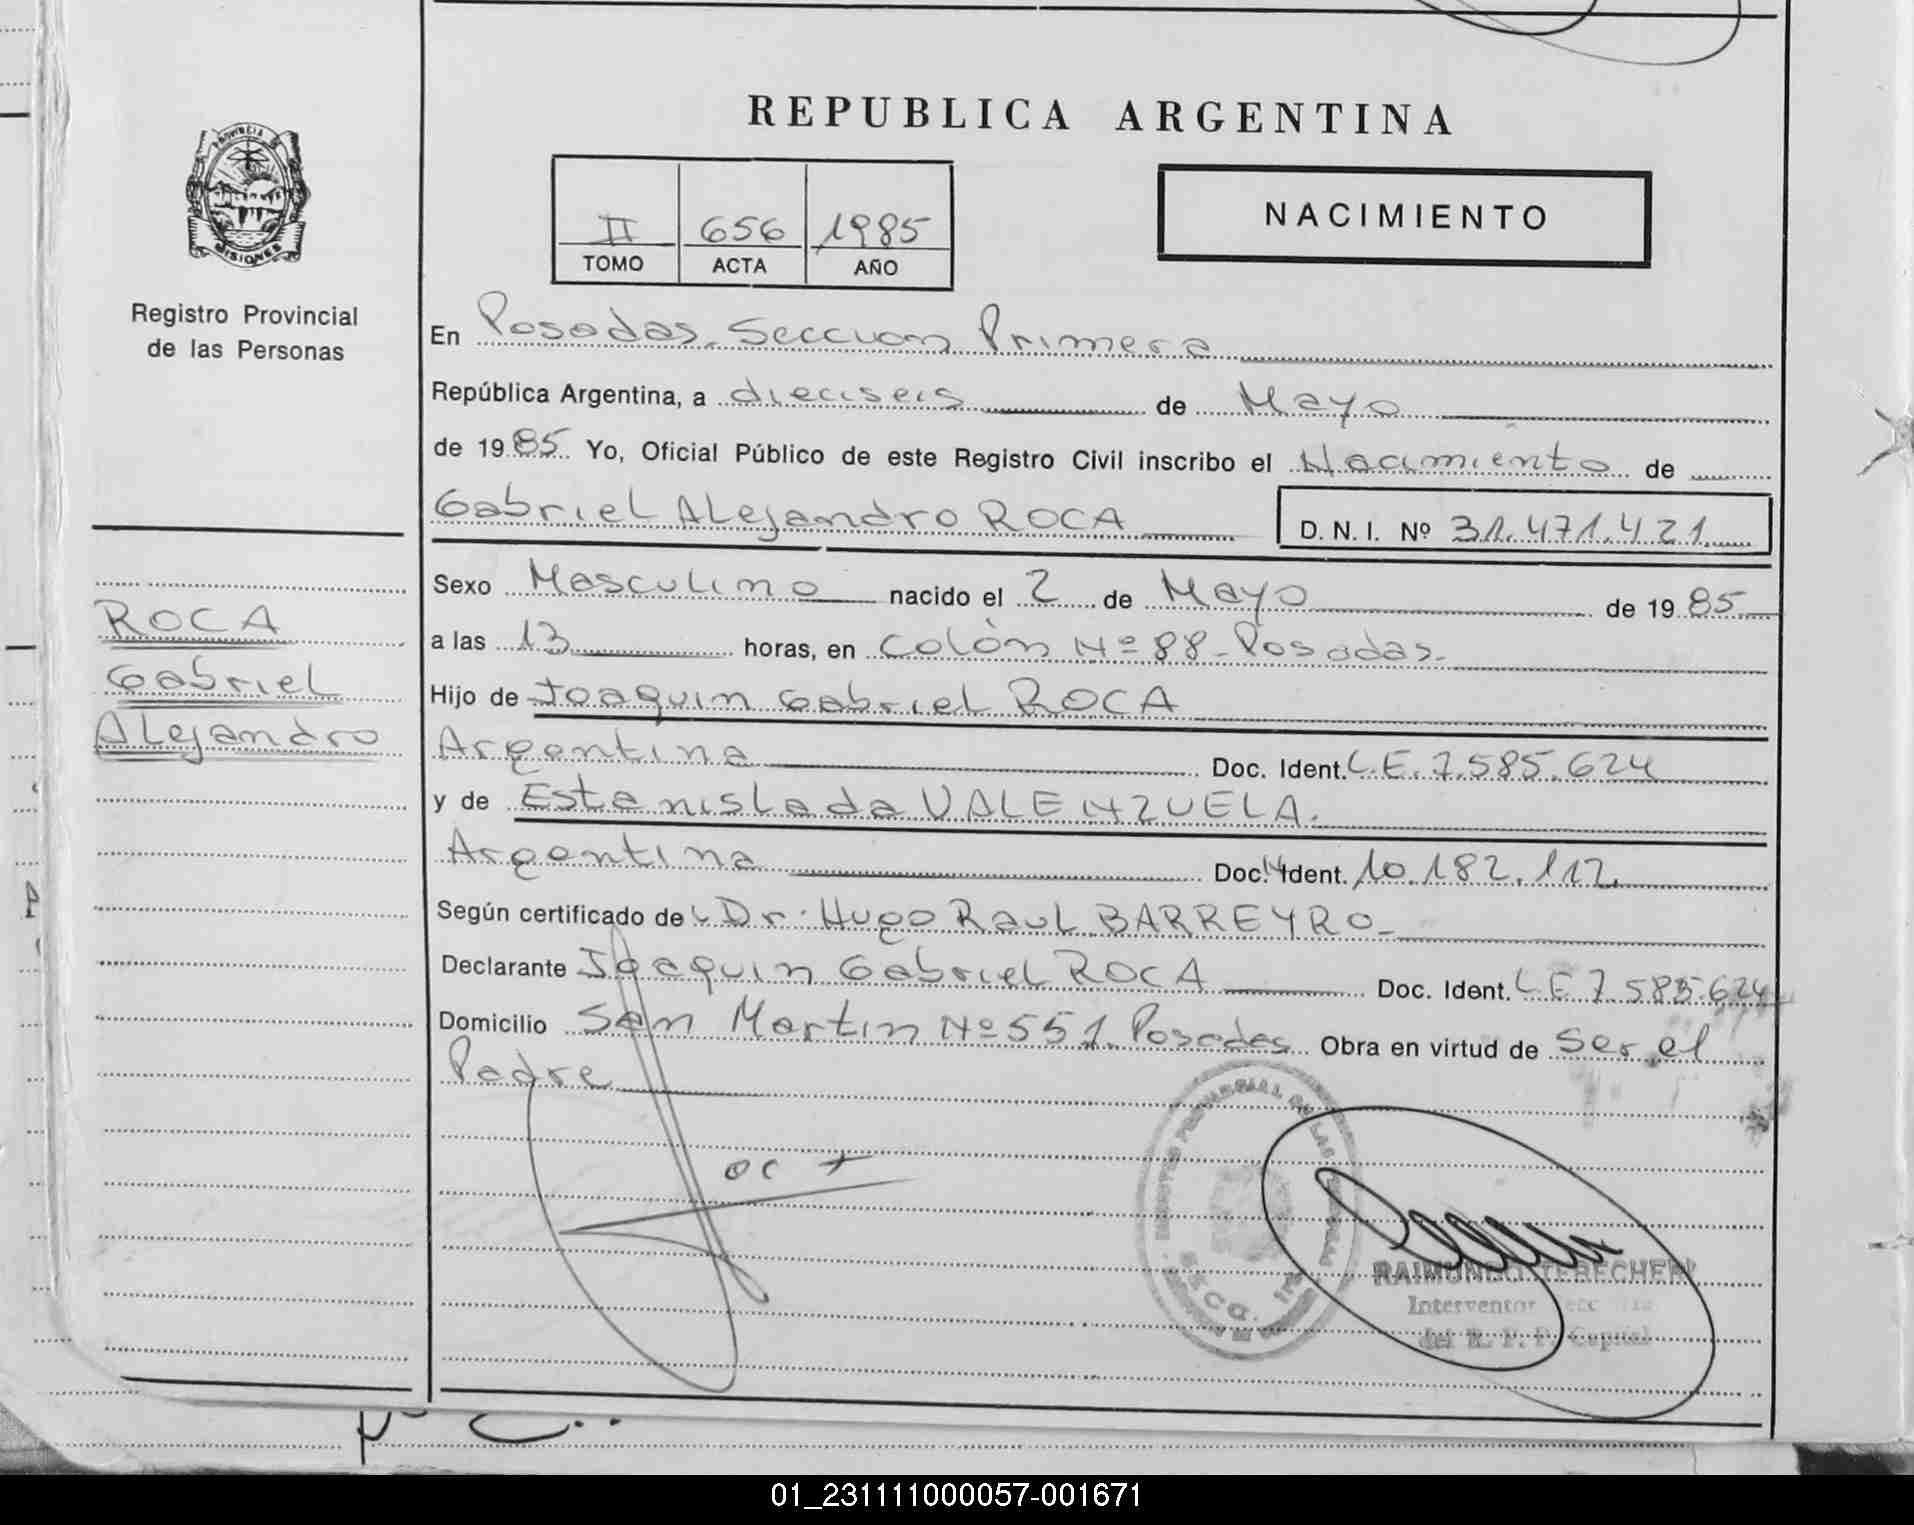 REPUBLICA ARGENTINA
PROVINCIA DE
MISIONES
Registro Provincial
de las Personas
II 656 1985
TOMO ACTA AÑO
NACIMIENTO
En Posadas. Seccion Primera
República Argentina, a dieciseis de Mayo
de 1985 Yo, Oficial Público de este Registro Civil inscribo el Nacimiento de
Gabriel Alejandro ROCA D. N. I. Nº 31.471.421
Sexo Masculino nacido el 2 de Mayo de 1985
a las 13 horas, en Colón Nº 88 - Posadas.
Hijo de Joaquin Gabriel ROCA
Argentina Doc. Ident. L.E. 7.585.624
y de Estanislada VALENZUELA.
Argentina Doc. Ident. 10.182.112
Según certificado de Dr. Hugo Raul BARREYRO
Declarante Joaquin Gabriel ROCA Doc. Ident. LE 7.585.624
Domicilio San Martin Nº 551. Posadas Obra en virtud de Ser el
Padre
ROCA
Gabriel
Alejandro
RAIMUNDO
Interventor
del R. P. P. Capital
01_231111000057-001671